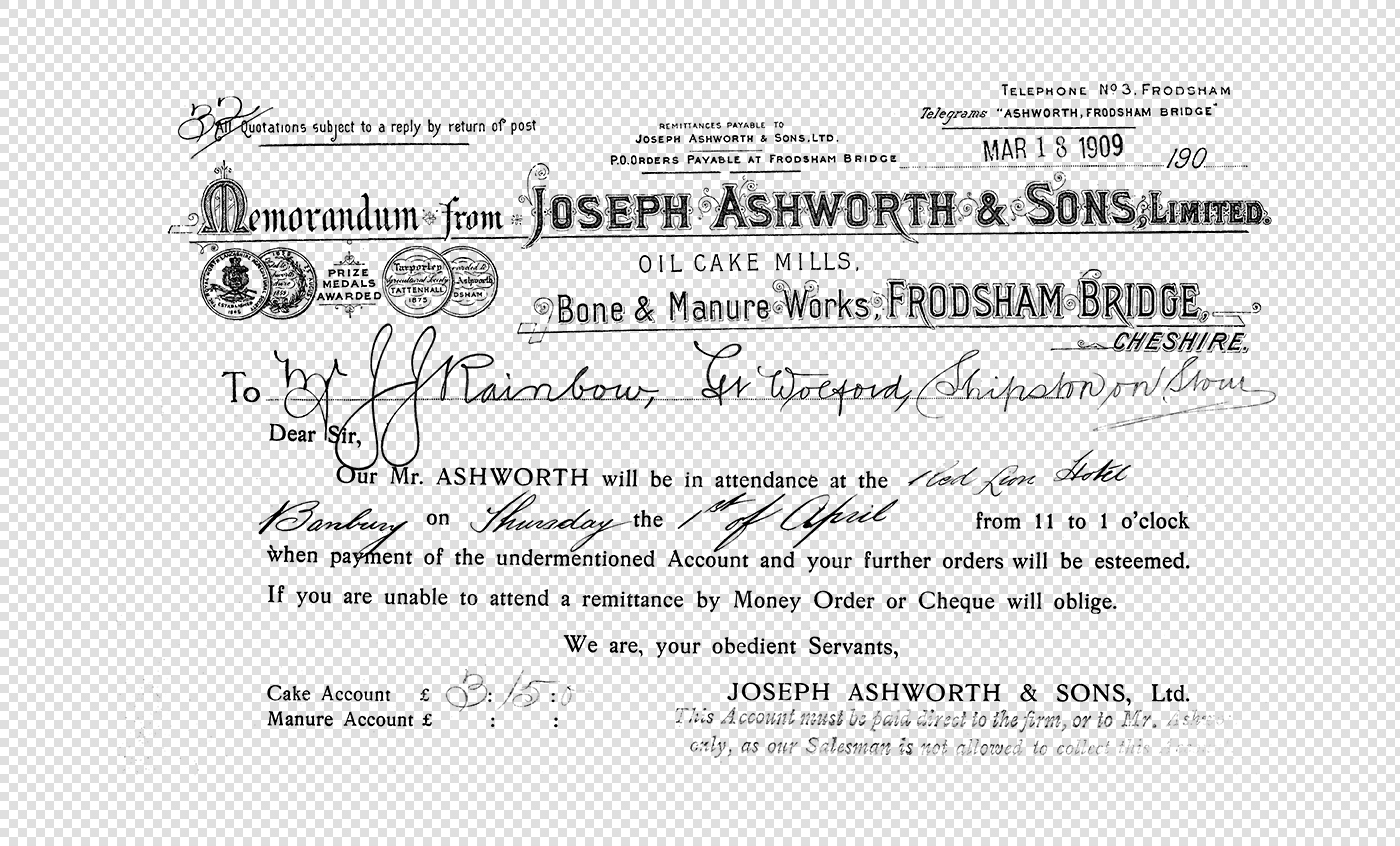 32
All Quotations subject to a reply by return of post
REMITTANCES PAYABLE TO
JOSEPH ASHWORTH & SONS, LTD.
P.O. ORDERS PAYABLE AT FRODSHAM BRIDGE
TELEPHONE No 3, FRODSHAM
Telegrams "ASHWORTH, FRODSHAM BRIDGE"
MAR 18 1909 190
Memorandum from JOSEPH ASHWORTH & SONS, LIMITED.
PRIZE
MEDALS
AWARDED
Tarporley
Agricultural Society
TATTENHALL
1875
OIL CAKE MILLS,
Bone & Manure Works, FRODSHAM BRIDGE,
CHESHIRE.
To Mr J J Rainbow, Gt Wolford, Shipston on Stour
Dear Sir,
Our Mr. ASHWORTH will be in attendance at the Red Lion Hotel
Banbury on Thursday the 1st of April from 11 to 1 o'clock
when payment of the undermentioned Account and your further orders will be esteemed.
If you are unable to attend a remittance by Money Order or Cheque will oblige.
We are, your obedient Servants,
Cake Account £ 3 : 15 : 0
Manure Account £ : :
JOSEPH ASHWORTH & SONS, Ltd.
This Account must be paid direct to the firm, or to Mr.
only, as our Salesman is not allowed to collect this